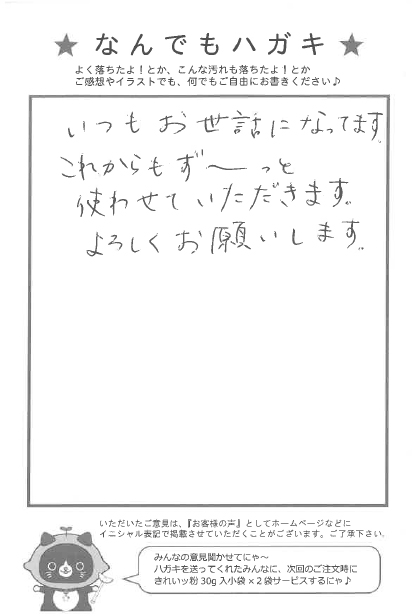 ★ なんでもハガキ ★
よく落ちたよ！とか、こんな汚れも落ちたよ！とか
ご感想やイラストでも、何でもご自由にお書きください♪
いつもお世話になってます。
これからもず～っと
使わせていただきます。
よろしくお願いします。
いただいたご意見は、『お客様の声』としてホームページなどに
イニシャル表記で掲載させていただくことがございます。ご了承下さい。
みんなの意見聞かせてにゃ～
ハガキを送ってくれたみんなに、次回のご注文時に
きれいッ粉 30g 入小袋 × 2 袋サービスするにゃ♪